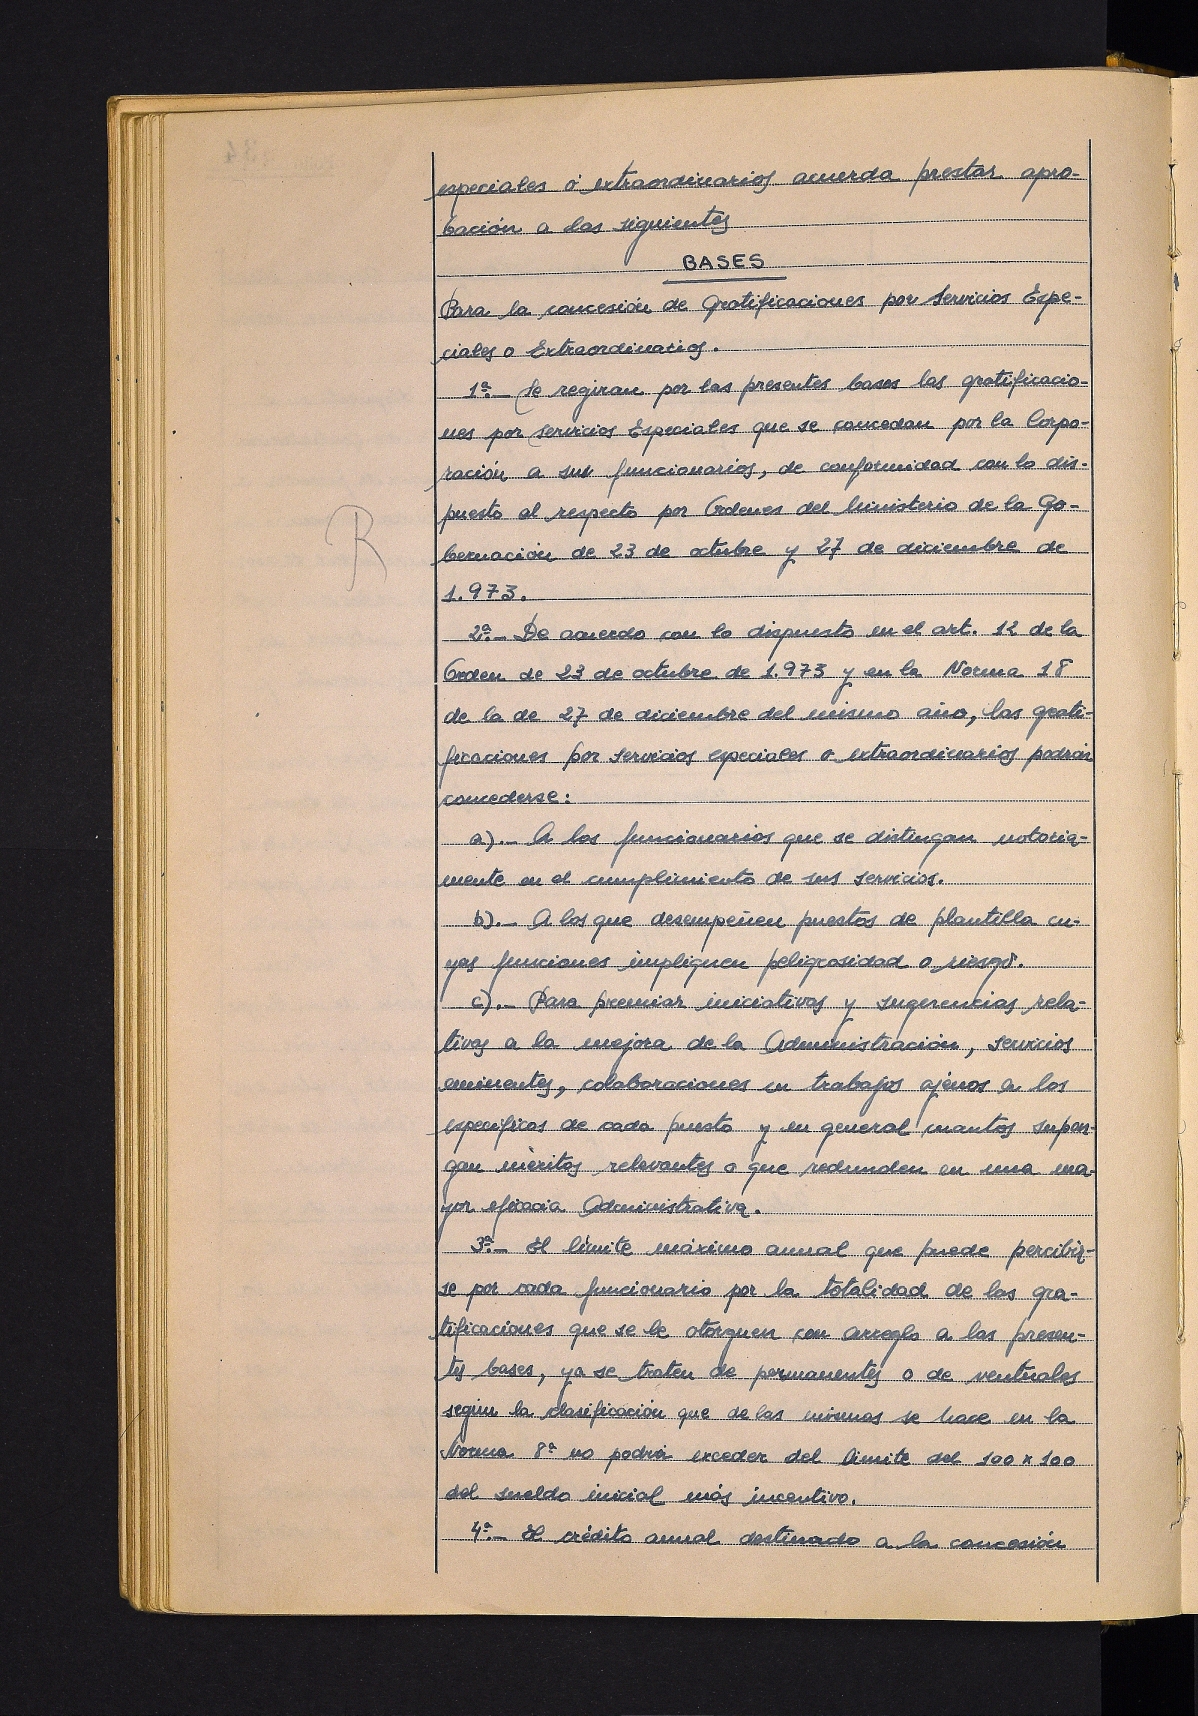 especiales ó extraordinarios acuerda prestar apro-
bación a las siguientes
BASES
Para la concesión de Gratificaciones por Servicios Espe-
ciales o Extraordinarios.
1ª.- Se regiran por las presentes bases las gratificacio-
nes por Servicios Especiales que se concedan por la Corpo-
ración a sus funcionarios, de conformidad con lo dis-
puesto al respecto por Ordenes del Ministerio de la Go-
bernación de 23 de octubre y 27 de diciembre de
1.973.
2ª.- De acuerdo con lo dispuesto en el art. 12 de la
Orden de 23 de octubre de 1.973 y en la Norma 18
de la de 27 de diciembre del mismo año, las grati-
ficaciones por servicios especiales o extraordinarios podrán
concederse:
a).- A los funcionarios que se distingan notoria-
mente en el cumplimiento de sus servicios.
b).- A los que desempeñen puestos de plantilla cu-
yas funciones impliquen peligrosidad o riesgo.
c).- Para premiar iniciativas y sugerencias rela-
tivas a la mejora de la Administración, servicios
eminentes, colaboraciones en trabajos ajenos a los
especificos de cada puesto y en general cuantos supon-
gan méritos relevantes o que redunden en una ma-
yor eficacia Administrativa.
3ª.- El límite máximo annal que puede percibir-
se por cada funcionario por la totalidad de las gra-
tificaciones que se le otorguen con arreglo a las presen-
tes bases, ya se traten de permanentes o de ventuales
según la clasificación que de las mismas se hace en la
Norma 8ª no podrá exceder del limite del 100 x 100
del sueldo inicial más incentivo.
4ª.- El crédito annal destinado a la concesión
R